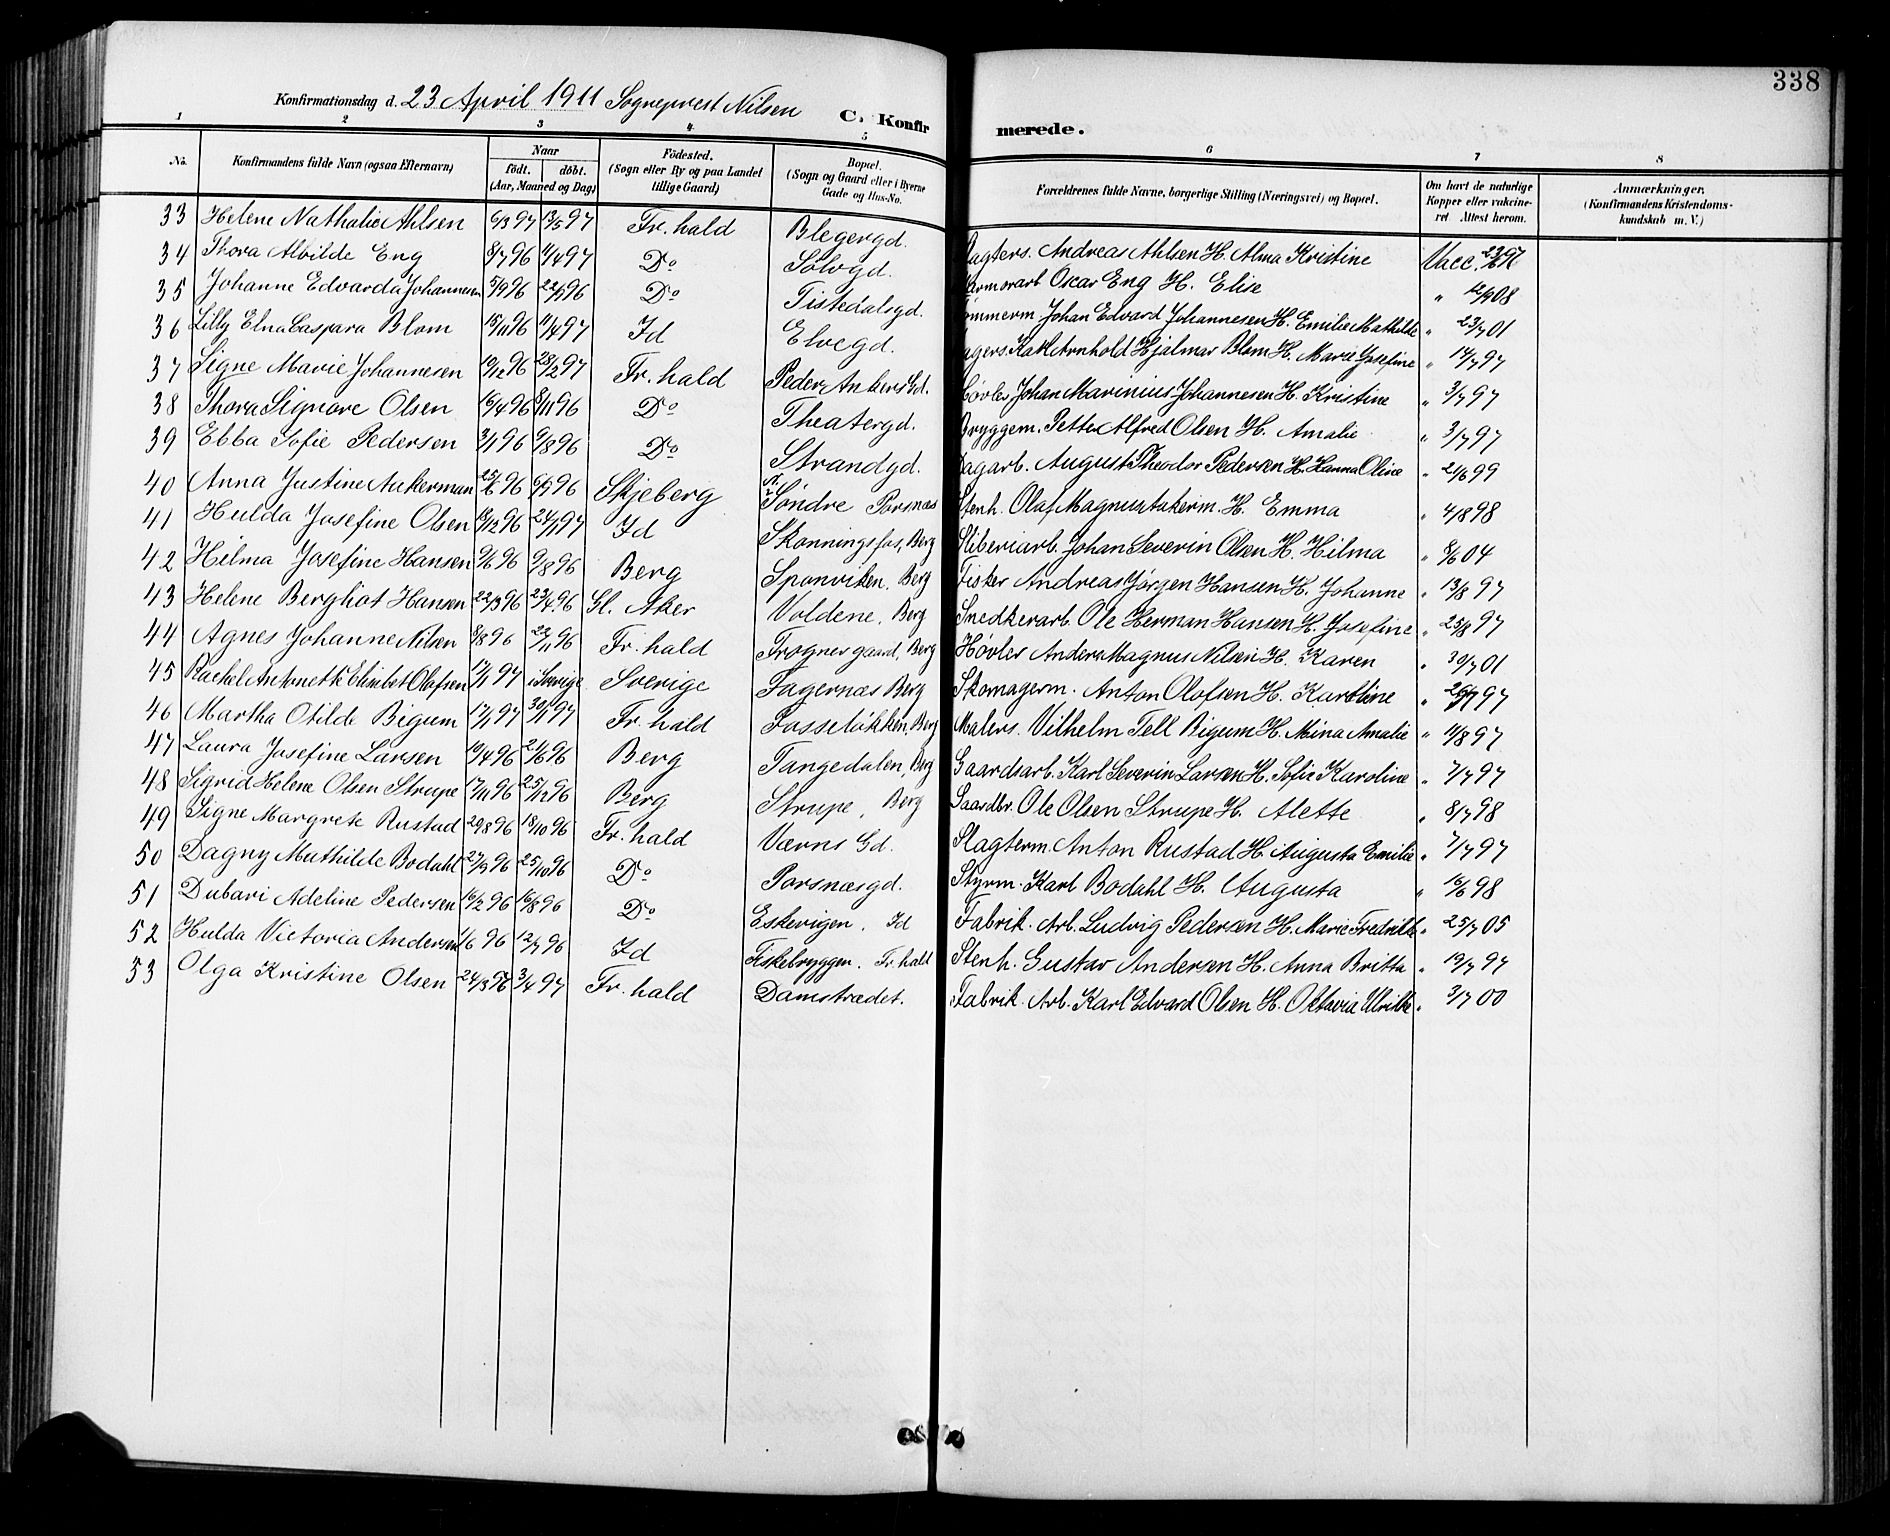 338
Konfirmationsdag d. 23 April 1911 Sogneprest Nilsen C. Konfirmerede.
1 2 3 4 5 6 7 8
No. Konfirmandens fulde Navn (ogsaa Efternavn) Naar født. døbt. (Aar, Maaned og Dag) Fødested. (Sogn eller By og paa Landet tillige Gaard) Bopæl. (Sogn og Gaard eller i Byerne Gade og Hus-No. Forældrenes fulde Navne, borgerlige Stilling (Næringsvei) og Bopæl. Om havt de naturlige Kopper eller vaccineret Attest herom. Anmærkninger. (Konfirmandens Kristendomskundskab m. V.)
33 Helene Nathalie Ahlsen 6/3 97 13/5 97 Fr.hald Blegergd. Andreas Ahlsen H. Alma Kristine Vacc.
34 Thora Alvilde Eng 8/7 96 11/4 97 Do Sølvgd. Oscar Eng H. Elise " 08
35 Johanne Edvarda Johannesen 5/9 96 96 Do Tistedalsgd. Johan Edvard Johannesen H. Emilie Mathilde " 23/7 01
36 Lilly Elna Caspara Blom 15/11 96 11/4 97 Id Elvegd. Karl Arnhold Hjalmar Blom H. Marie Josefine " 14/7 97
37 Signe Marie Johannesen 10/12 96 28/2 97 Fr.hald Peder Ankers Gd. Høvler Johan Marinius Johannesen H. Kristine " 3/7 97
38 Thora Signore Olsen 16/4 96 8/11 96 Do Theatergd. Bryggem. Petter Alfred Olsen H. Amalie " 3/7 97
39 Ebba Sofie Pedersen 3/1 96 9/8 96 Do Strandgd. Dagarb. August Theodor Pedersen H. Hanna Oline " 21/6 99
40 Anna Justine Aakerman 25/6 96 96 Skjeberg Søndre Porsnæs Stenh. Olaf Magnus Aakerm. H. Emma " 4/8 98
41 Hulda Josefine Olsen 96 24/1 97 Id Skonningsfos, Berg Sliberiarb. Johan Severin Olsen H. Hilma " 8/6 04
42 Hilma Josefine Hansen 9/6 96 9/8 96 Berg Sponviken, Berg Fisker Andreas Jørgen Hansen H. Johanne " 13/8 97
43 Helene Berghot Hansen 22/3 96 23/4 96 Gl. Aker Voldene, Berg Snedkerarb. Ole Herman Hansen H. Josefine " 25/8 97
44 Agnes Johanne Nilsen 8/8 96 22/11 96 Fr.hald Trognergaard, Berg Høvler Anders Magnus Nilsen H. Karen " 30/7 01
45 Rachel Antonette Elisebet Olafsen 17/1 97 i Sverige Sverige Fagernæs Berg Skomagerm. Anton Olofsen H. Karoline " 97
46 Martha Otilde Bigum 17/1 97 97 Fr.hald Fosseløkken, Berg Malers. Vilhelm Tell Bigum H. Mina Amalie " 11/8 97
47 Laura Josefine Larsen 10/4 96 21/6 96 Berg Tangedalen, Berg Gaardsarb. Karl Severin Larsen H. Sofie Karoline " 7/7 97
48 Sigrid Helene Olsen Strupe 17/11 96 25/12 96 Berg Strupe, Berg Gaardbr. Ole Olsen Strupe H. Alette " 8/7 98
49 Signe Margrete Rustad 29/8 96 18/10 96 Fr.hald Værns Gd. Slagterm. Anton Rustad H. Augusta Emilie " 7/7 97
50 Dagny Mathilde Bodahl 27/9 96 25/10 96 Do Porsnæsgd. Styrm. Karl Bodahl H. Augusta " 16/6 98
51 Dubari Adeline Pedersen 16/2 96 16/8 96 Do Eskevigen, Id Fabrik. Arb. Ludvig Pedersen H. Marie Fredrikke " 25/7 05
52 Hulda Victoria Andersen 1/6 96 12/7 96 Id Fiskebryggen, Fr.hald Stenh. Gustav Andersen H. Anna Britta " 19/7 97
53 Olga Kristine Olsen 24/3 96 3/4 97 Fr.hald Damstrædet. Fabrik. Arb. Karl Edvard Olsen H. Oktavia Ulrikke " 3/7 00